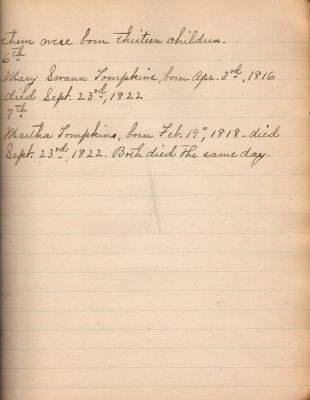 them were born thirteen children.
6th
Mary Swann Tompkins, born Apr. 3rd, 1816
died Sept. 23rd, 1822
7th
Martha Tompkins, born Feb. 19", 1818 - died
Sept. 23rd, 1822. Both died the same day.